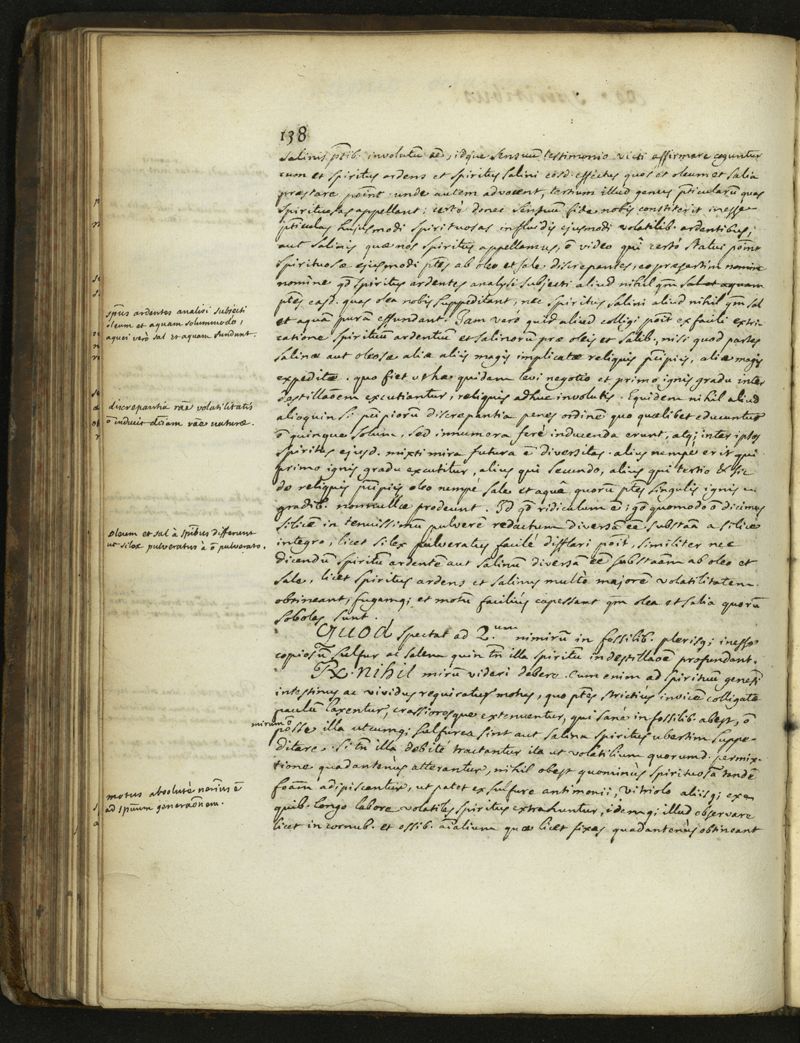 138
salinis ptib. involutũ eẽ, idque sensuũ testimonio victi affirmare coguntur
cum et spiritus ardens et spiritus salini eosd. effectus quos et oleum et salia
præstare poĩnt. unde autem advocent, tertium illud genus pticularũ quas
spirituosas appellant; certò donec sensuum fide nobis constiterit inesse
pticulas hujusmodi spirituosas in fluidis ejusmodi volatilib. ardentibus,
aut salinis quæ nos spiritus appellamus, õ video quî certò statui poĩnt
spirituosæ ejusmodi ptes ab oleo et sale discrepantes, eo præsertim nomine
nomine qđ spiritus ardentes analysi subjecti aliud nihil qm̃ sal et aquam
ptes easd. quas olea nobis suppeditant, nec spiritus salini aliud nihil qm̃ sal
et aquã purã effundant. Jam verò quid aliud colligi poĩt ex facili extri-
catione spirituũ ardentiũ et salinorũ præ oleis et salib. nisi quod partes
salinæ aut oleosæ aliæ aliis magis implicatæ reliquis pũpiis, aliæ magis
expeditæ. quo fiet ut hæ quidam levi negotio et primo ignis gradu inter
destillãoem excutiantur, reliquis adhuc involutis. Equidem nihil aliud
alioquin si pũpiorũ discrepantia penes ordinẽ quo quælibet educuntur
õ quinque solum, sed innumera ferè inducenda erunt, atq; inter ipsos
spiritus ejusd. mixti mira futura ẽ diversitas. alius nempe erit qui
primo ignis gradu excutitur, alius qui secundo, alius qui tertio &
de reliquis pũpiis oleo nempè sale et aquâ quorũ ptes singulis ignis
gradib. nonnullæ prodeunt. Id qđ ridiculum ẽ; qđ quomodo õ dicimus
silicẽ in tenuissimũ pulverẽ redactum diversã eẽ substãã a silice
integro, licet silex pulveratus facilè difflari poĩt, similiter nec
dicendũ spiritũ ardentẽ aut salinũ diversã eẽ substããm ab oleo et
sale, licet spiritus ardens et salinus multò majorẽ volatilitatem
obtineant; fugamq; et motũ faciliùs capessant qm̃ olea et salia quorũ
soboles sunt.
Quod spectat ad 2.um nimirũ in fossilib. plerisq; inesse
copiosũ sulfur ac salem quin tñ illa spiritũ in destillãoẽ profundant.
Rx. nihil mirũ videri debere. cum enim ad spirituũ genesĩ
intestinus ac vividus requiratur motus, quo ptes strictiùs invicẽ colligatæ
paulùm laxentur, crassioresque extenuentur, qui sanè in fossilib. abest, õ
mirum õ
posse illa utcumq; sulfurea sint aut salina spiritus ubertim suppe-
ditare. si tñ illa debitè tractantur ita ut volatilium quorumd. permix-
tione quadantenùs atterantur, nihil obest quominùs spirituosã tandẽ
foãm adipiscantur, ut patet ex sulfure antimonii, vitriolo aliisq; ex
quib. longo labore volatiles spiritus extrahuntur, idemq; illud observare
licet in cornub. et ossib. aĩalium quæ licet fixas quadantenùs obtineant
spũs ardentes analisi subjecti
oleum et aquam solummodo,
aquei verò sal et aquam fundant.
discrepantia ræ volatilitatis
õ inducit dr̃iam ræ naturæ.
oleum et sal à spĩbus differunt
ut silex pulveratus à õ pulverato.
motus absolutè neriùs ẽ
ad spũum generaõnem.